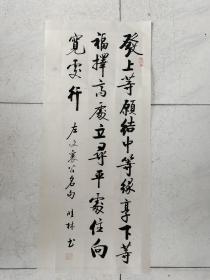 發上等願結中等緣享下等
福擇高處立尋平處住向
寬處行
左文襄公名句 旺林書